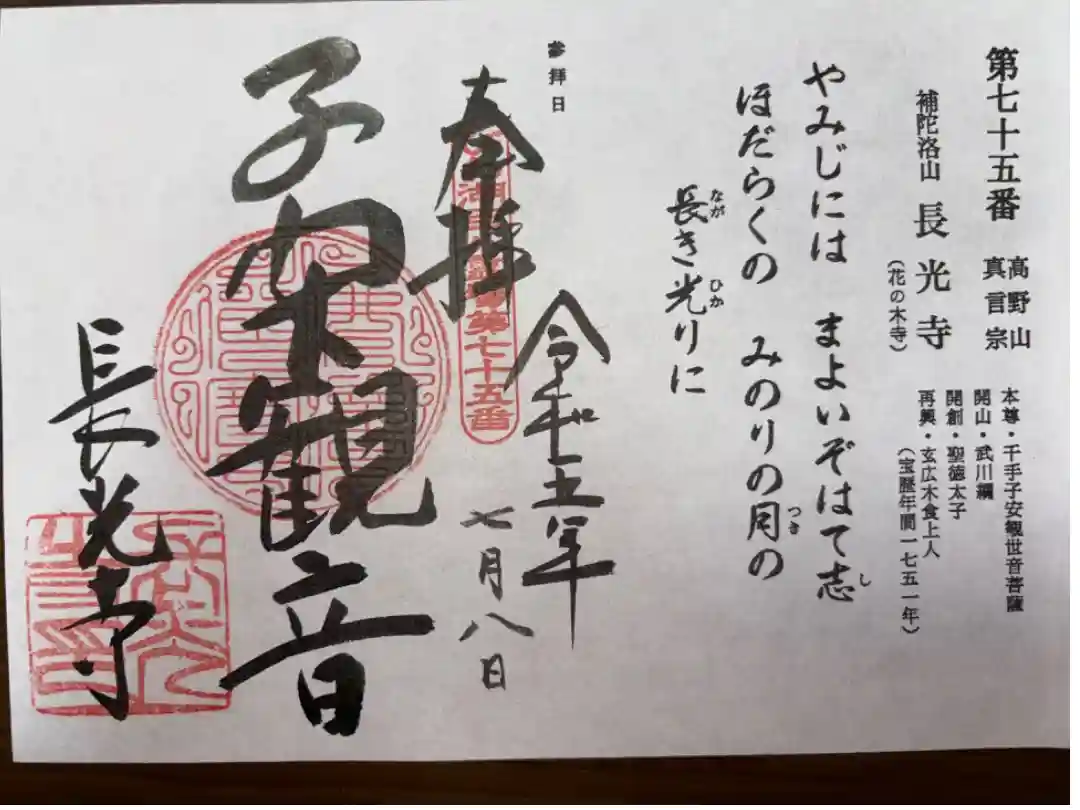 第七十五番
高野山
真言宗
補陀洛山 長光寺
(花の木寺)
本尊・千手子安観世音菩薩
開山・武川綱
開創・聖徳太子
再興・玄広木食上人
(宝暦年間一七五一年)
やみじには まよいぞはて志
し
ほだらくの みのりの月の
つき
長き光りに
なが ひか
参拝日
奉拝
第七十五番
令和五年
七月八日
子安観音
長光寺